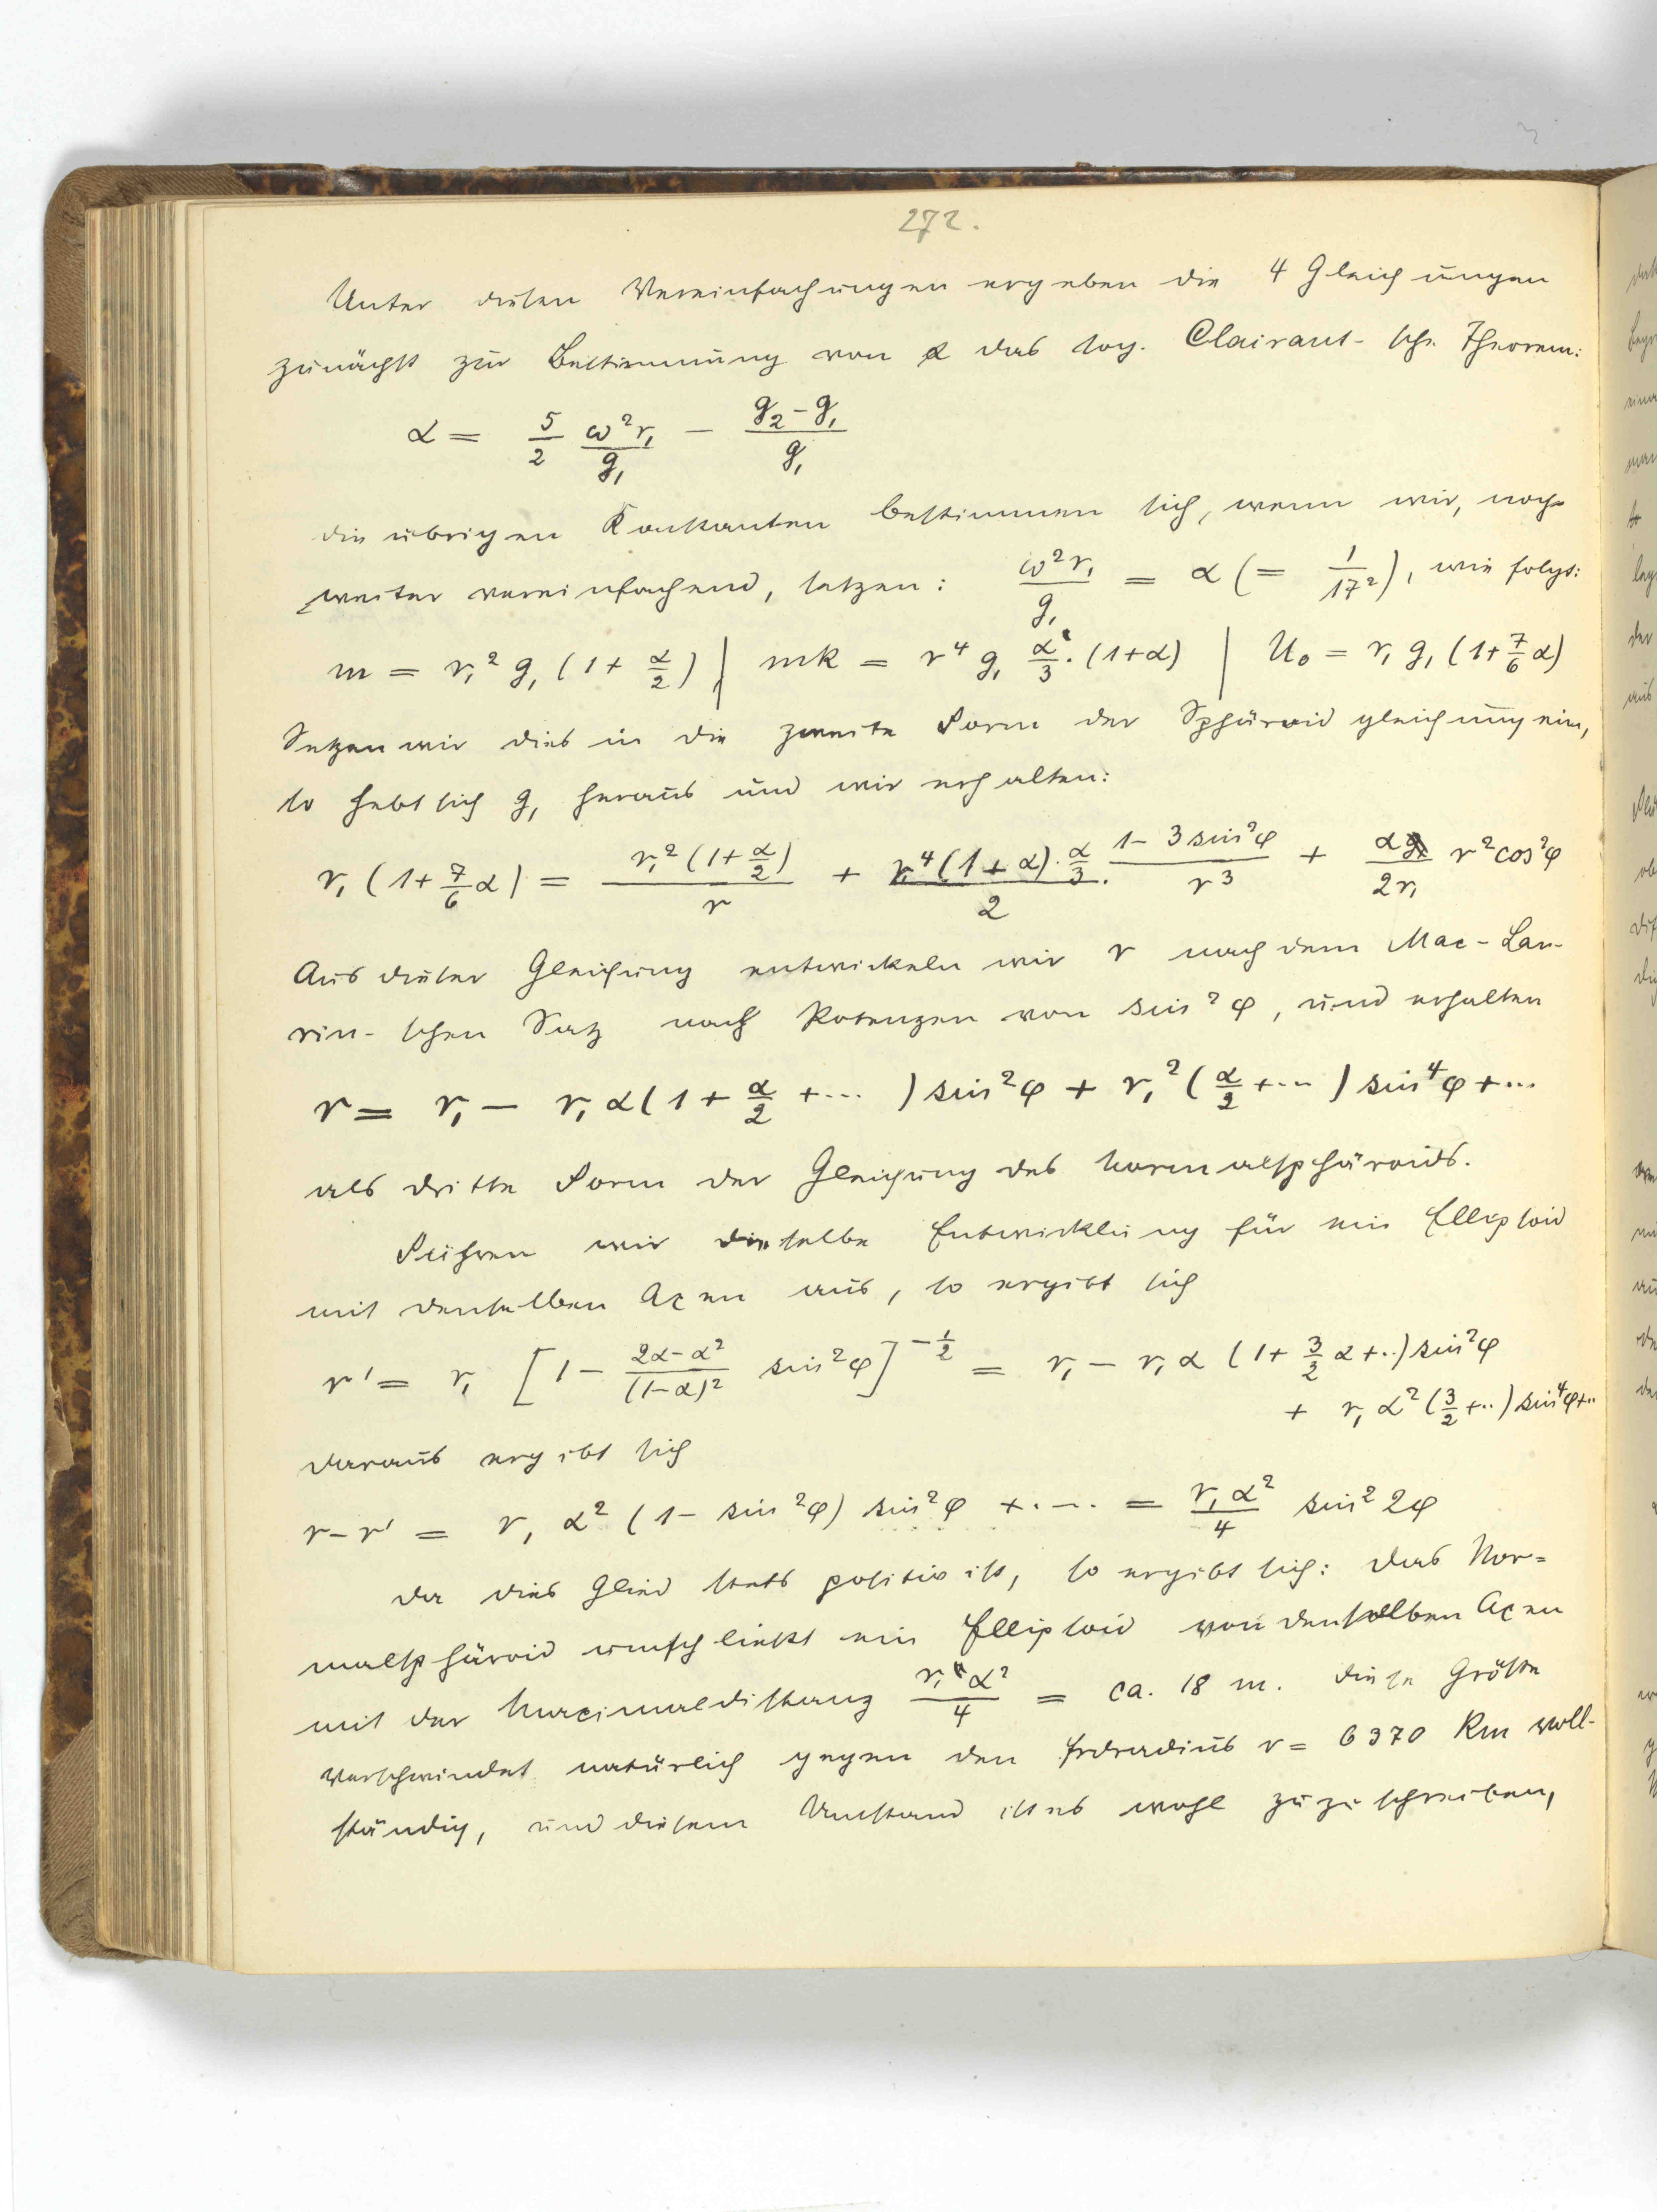 272.
Unter diesen Vereinfachungen ergeben die 4 Gleichungen
zunächst zur Bestimmung von α das sog. Clairaut-sche Theorem:
α = 5/2 ω²r₁/g₁ − (g₂−g₁)/g₁
die übrigen Konstanten bestimmen sich, wenn wir, noch
weiter vereinfachend, setzen: ω²r₁/g₁ = α (= 1/17²), wie folgt:
m = r₁² g₁ (1+ α/2) | mk = r⁴ g₁ α/3 · (1+α) | U₀ = r₁ g₁ (1+ 7/6 α)
Setzen wir dies in die zweite Form der Sphäroidgleichung ein,
so hebt sich g₁ heraus und wir erhalten:
r₁ (1+ 7/6 α) = r₁²(1+ α/2)/r + r₁⁴(1+α)· α/3 /2 · (1−3 sin²φ)/r³ + α/2r₁ r² cos²φ
Aus dieser Gleichung entwickeln wir r nach dem Mac-Lau-
rin-schen Satz nach Potenzen von sin²φ, und erhalten
r = r₁ − r₁ α(1+ α/2 +...) sin²φ + r₁²(α/2 +...) sin⁴φ +...
als dritte Form der Gleichung des Normalsphäroids.
Führen wir dieselbe Entwicklung für ein Ellipsoid
mit denselben Axen aus, so ergibt sich
r' = r₁ [1 − (2α−α²)/(1−α)² sin²φ]^(−1/2) = r₁ − r₁ α (1+ 3/2 α+..) sin²φ
+ r₁ α² (3/2 +..) sin⁴φ+..
daraus ergibt sich
r−r' = r₁ α² (1− sin²φ) sin²φ +.... = r₁α²/4 sin² 2φ
da dies Glied stets positiv ist, so ergibt sich: das Nor=
malsphäroid umschliesst ein Ellipsoid von denselben Axen
mit der Maximaldistanz r₁α²/4 = ca. 18 m. diese Grösse
verschwindet natürlich gegen den Erdradius r = 6370 Km voll-
ständig, und diesem Umstand ist es wohl zuzuschreiben,